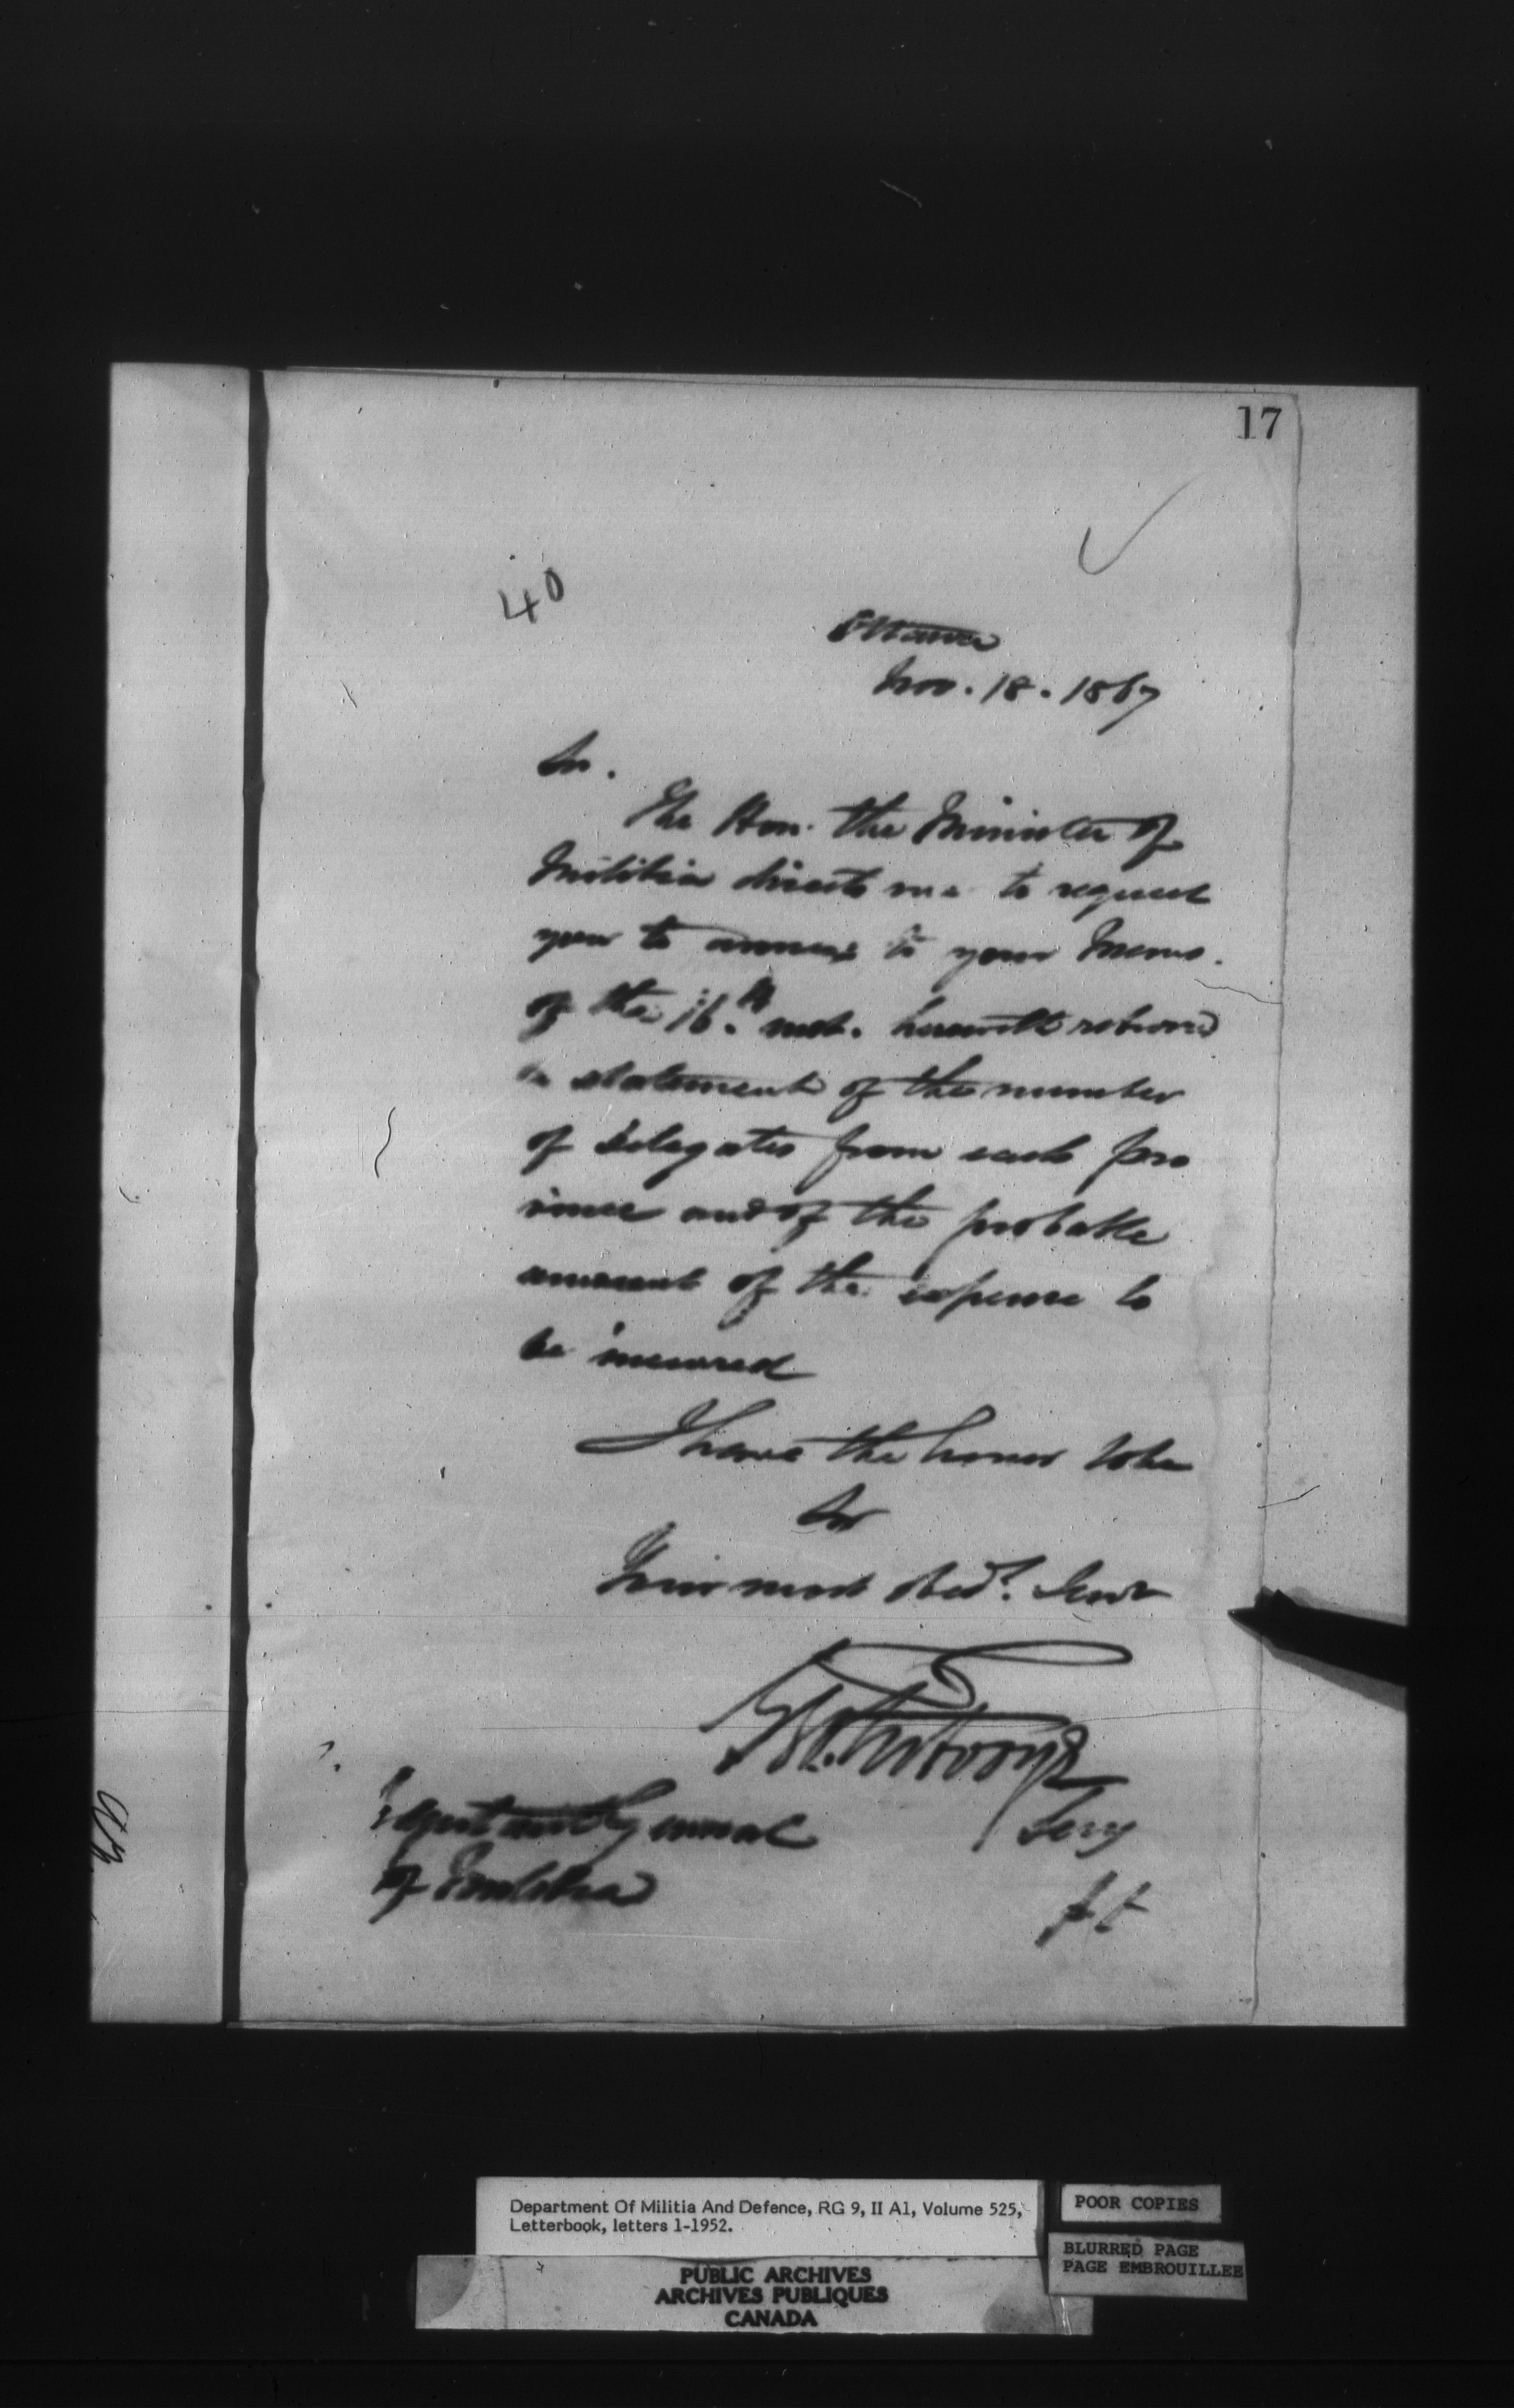 17
40
Ottawa
Nov. 18. 1867
Sir.
The Hon. the Minister of
Militia directs me to request
you to annex to your Memo.
of the 16.th inst. herewith returned
a statement of the number
of Delegates from each pro
vince and of the probable
amount of the expense to
be incurred
I have the honor to be
Sir
Your most obedt. Servt
Secy
Adjutant General
of Militia
Department Of Militia And Defence, RG 9, II A1, Volume 525,
Letterbook, letters 1-1952.
POOR COPIES
BLURRED PAGE
PAGE EMBROUILLEE
PUBLIC ARCHIVES
ARCHIVES PUBLIQUES
CANADA